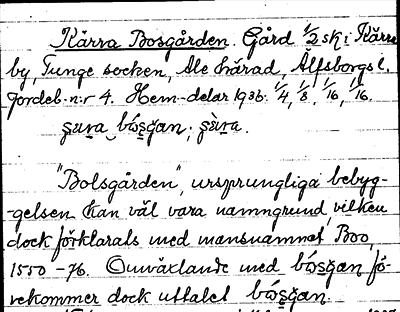 Kärra Bosgården. Gård 1/2 sk i Kärra
by, Tunge socken, Ale härad, Älfsborgs l.
Jordeb. n:r 4. Hem-delar 1936. 1/4, 1/8, 1/16, 1/16.
"Bolsgården", ursprungliga bebyg-
-gelsen kan väl vara namngrund, vilken
dock förklarals med mansnamnet Boo,
1550-76. Omväxlande med
rekommer dock uttalet